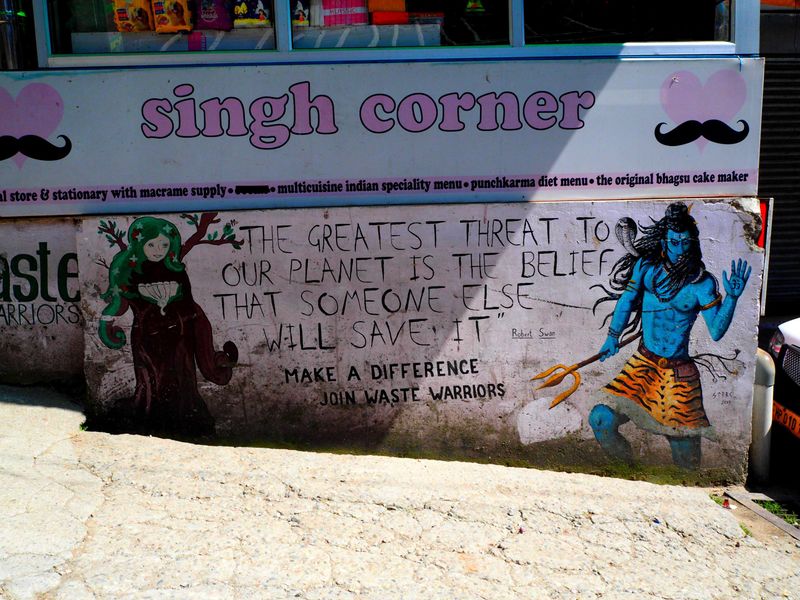 singh corner
al store & stationary with macrame supply • • multicuisine indian speciality menu • punchkarma diet menu • the original bhagsu cake maker
aste
ARRIORS
"THE GREATEST THREAT TO
OUR PLANET IS THE BELIEF
THAT SOMEONE ELSE
WILL SAVE IT"
Robert Swan
MAKE A DIFFERENCE
JOIN WASTE WARRIORS